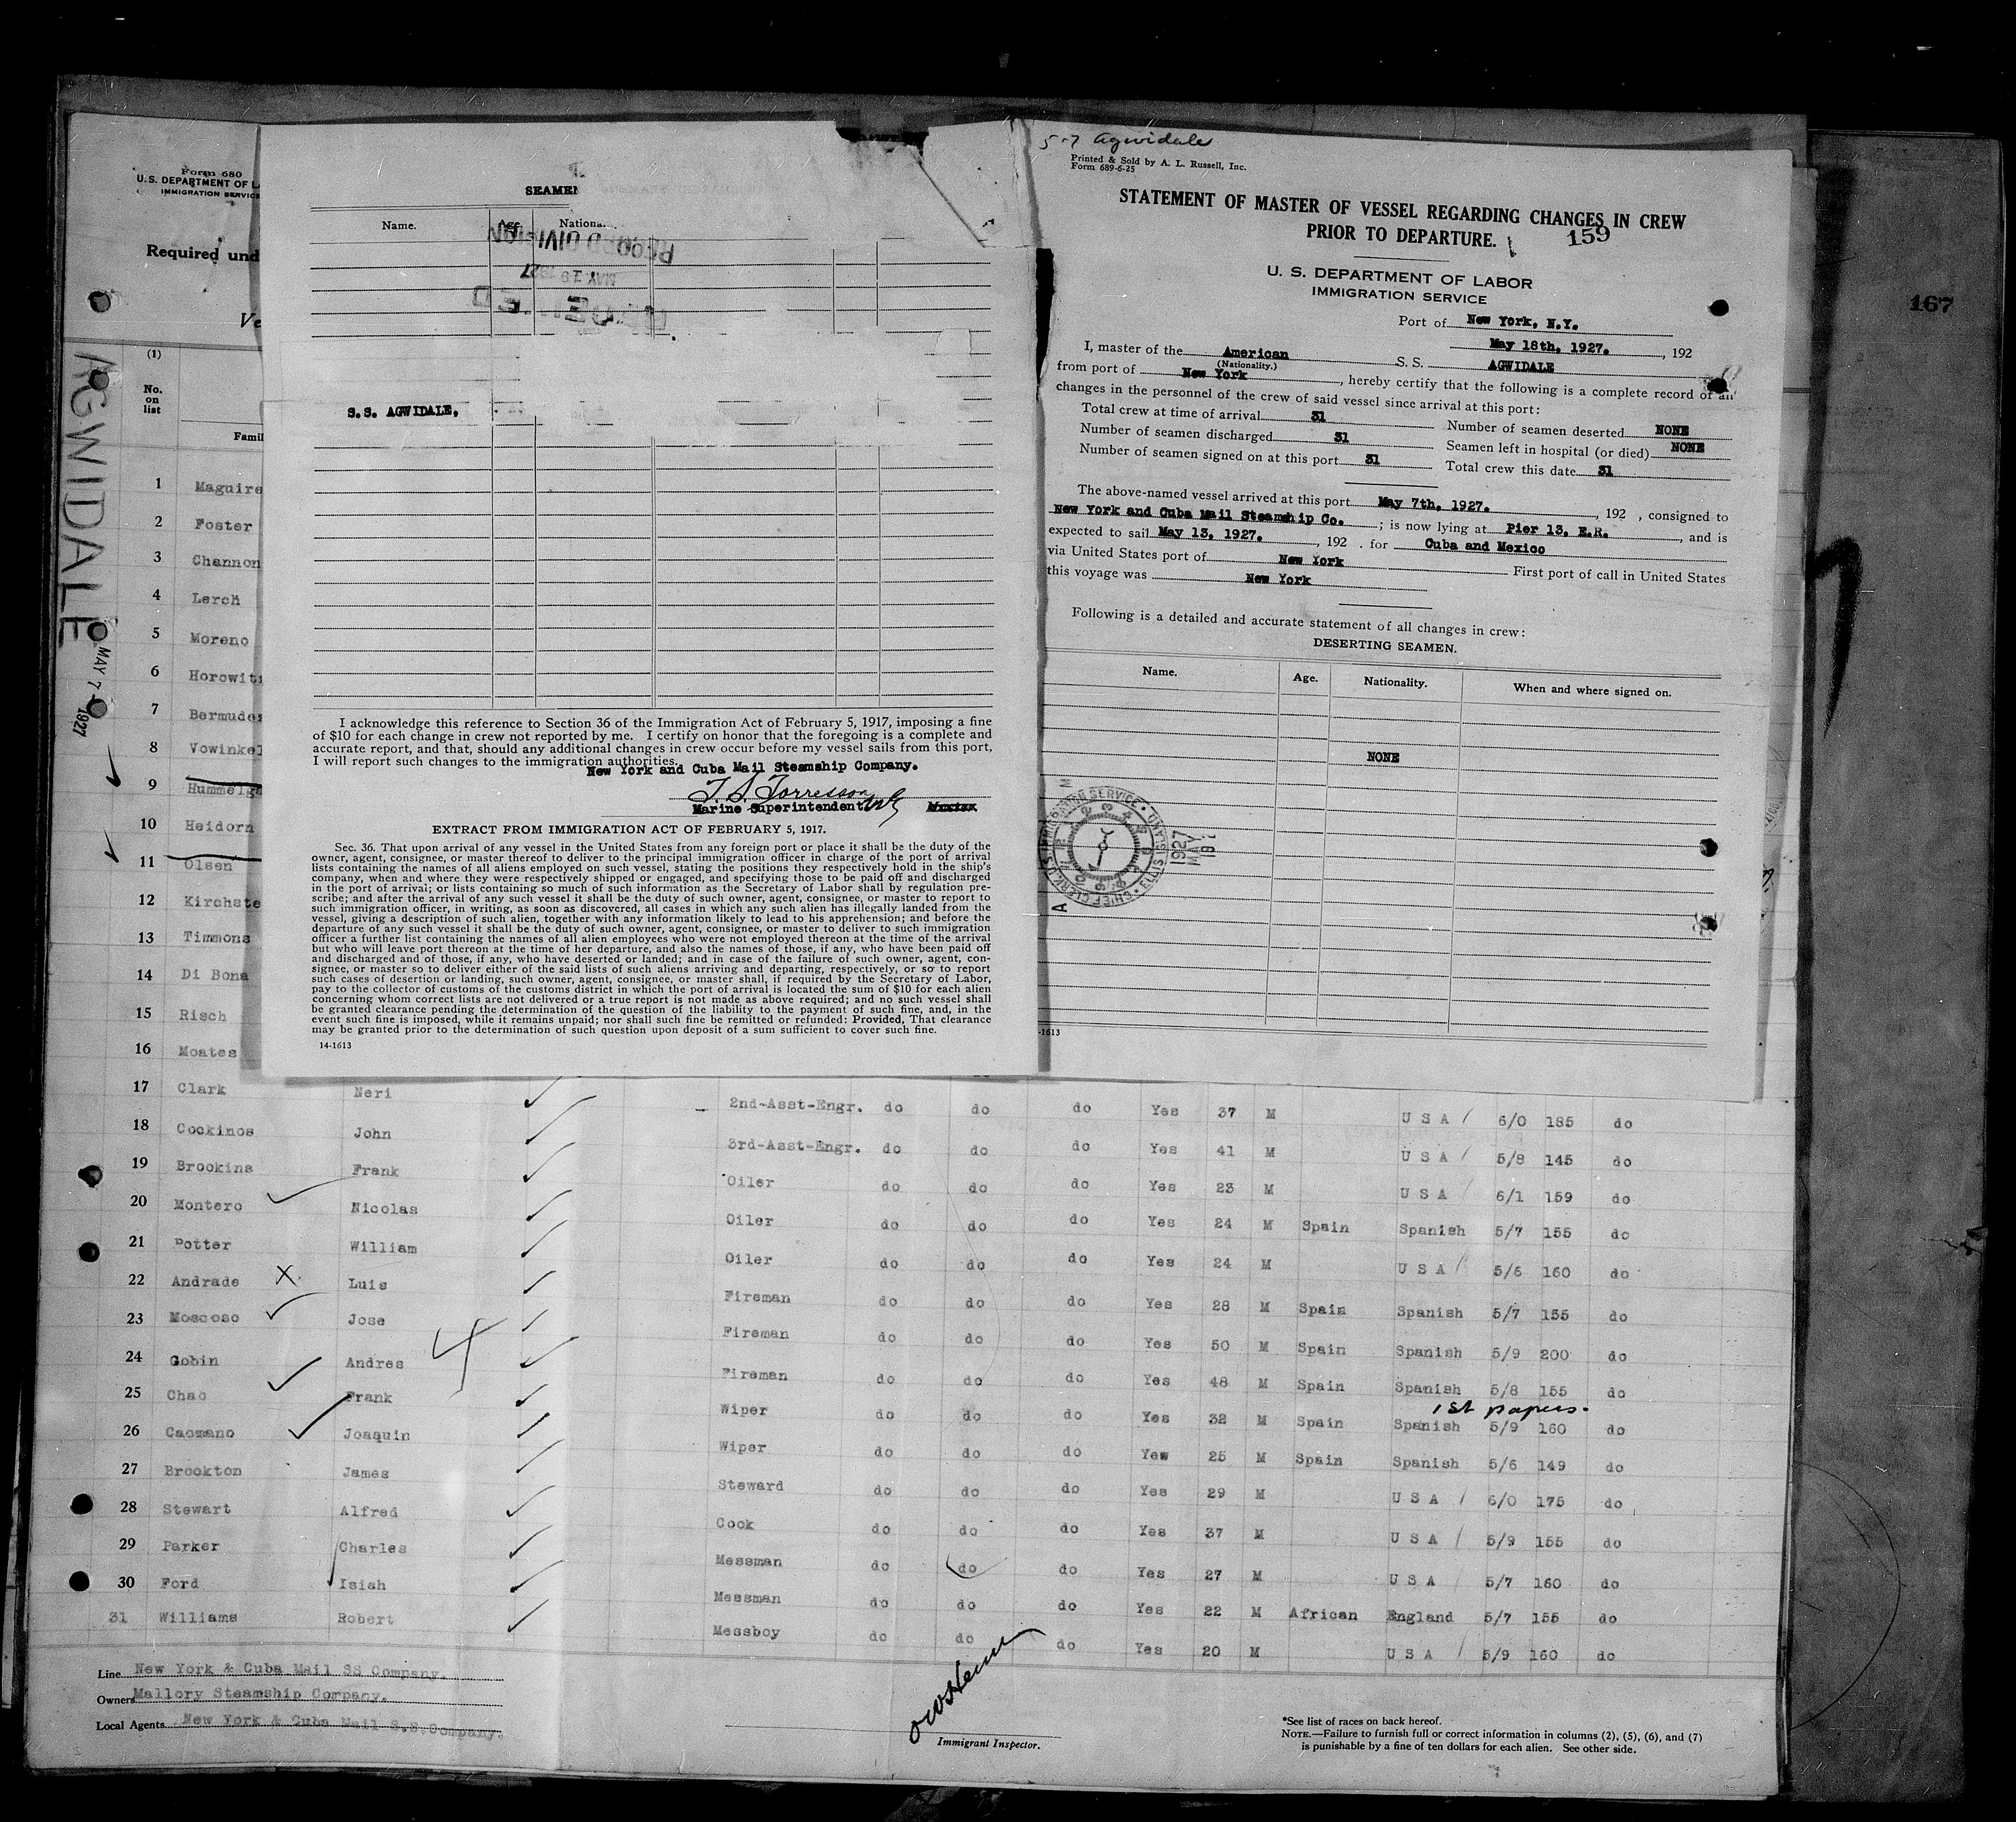 5-7 Agwidale
Printed & Sold by A. L. Russell, Inc.
Form 689-6-25
STATEMENT OF MASTER OF VESSEL REGARDING CHANGES IN CREW
PRIOR TO DEPARTURE.
159
U. S. DEPARTMENT OF LABOR
IMMIGRATION SERVICE
Port of New York, N.Y.
May 18th, 1927. , 192
I, master of the American S. S. AGWIDALE
(Nationality.)
from port of New York , hereby certify that the following is a complete record of all
changes in the personnel of the crew of said vessel since arrival at this port:
Total crew at time of arrival 31 Number of seamen deserted NONE
Number of seamen discharged 31 Seamen left in hospital (or died) NONE
Number of seamen signed on at this port 31 Total crew this date 31
The above-named vessel arrived at this port May 7th, 1927. , 192 , consigned to
New York and Cuba Mail Steamship Co. ; is now lying at Pier 13, E.R. , and is
expected to sail May 13, 1927. , 192 . for Cuba and Mexico
via United States port of New York First port of call in United States
this voyage was New York
Following is a detailed and accurate statement of all changes in crew:
DESERTING SEAMEN.
Name. Age. Nationality. When and where signed on.
NONE
-1613
167
Form 680
U.S. DEPARTMENT OF L
IMMIGRATION SERVICE
Required und
Ve
AGWIDALE
MAY 7 1927
(1)
No.
on
list
Famil
SEAMEN
Name. Age. Nationa
RECORD DIVISION
MAY 19 1927
S.S. AGWIDALE,
I acknowledge this reference to Section 36 of the Immigration Act of February 5, 1917, imposing a fine
of $10 for each change in crew not reported by me. I certify on honor that the foregoing is a complete and
accurate report, and that, should any additional changes in crew occur before my vessel sails from this port,
I will report such changes to the immigration authorities.
New York and Cuba Mail Steamship Company.
T. S. Torresson
Marine Superintendent
EXTRACT FROM IMMIGRATION ACT OF FEBRUARY 5, 1917.
Sec. 36. That upon arrival of any vessel in the United States from any foreign port or place it shall be the duty of the
owner, agent, consignee, or master thereof to deliver to the principal immigration officer in charge of the port of arrival
lists containing the names of all aliens employed on such vessel, stating the positions they respectively hold in the ship's
company, when and where they were respectively shipped or engaged, and specifying those to be paid off and discharged
in the port of arrival; or lists containing so much of such information as the Secretary of Labor shall by regulation pre-
scribe; and after the arrival of any such vessel it shall be the duty of such owner, agent, consignee, or master to report to
such immigration officer, in writing, as soon as discovered, all cases in which any such alien has illegally landed from the
vessel, giving a description of such alien, together with any information likely to lead to his apprehension; and before the
departure of any such vessel it shall be the duty of such owner, agent, consignee, or master to deliver to such immigration
officer a further list containing the names of all alien employees who were not employed thereon at the time of the arrival
but who will leave port thereon at the time of her departure, and also the names of those, if any, who have been paid off
and discharged and of those, if any, who have deserted or landed; and in case of the failure of such owner, agent, con-
signee, or master so to deliver either of the said lists of such aliens arriving and departing, respectively, or so to report
such cases of desertion or landing, such owner, agent, consignee, or master shall, if required by the Secretary of Labor,
pay to the collector of customs of the customs district in which the port of arrival is located the sum of $10 for each alien
concerning whom correct lists are not delivered or a true report is not made as above required; and no such vessel shall
be granted clearance pending the determination of the question of the liability to the payment of such fine, and, in the
event such fine is imposed, while it remains unpaid; nor shall such fine be remitted or refunded: Provided, That clearance
may be granted prior to the determination of such question upon deposit of a sum sufficient to cover such fine.
14-1613
1 Maguire
2 Foster
3 Channon
4 Lerch
5 Moreno
6 Horowit
7 Bermude
8 Vowinkel
9 Hummelg
10 Heidorn
11 Olsen
12 Kirchste
13 Timmons
14 Di Bona
15 Risch
16 Moates
17 Clark Neri 2nd-Asst-Engr. do do do Yes 37 M U S A 6/0 185 do
18 Cockinos John 3rd-Asst-Engr. do do do Yes 41 M U S A 5/8 145 do
19 Brookins Frank Oiler do do do Yes 23 M U S A 6/1 159 do
20 Montero Nicolas Oiler do do do Yes 24 M Spain Spanish 5/7 155 do
21 Potter William Oiler do do do Yes 24 M U S A 5/6 160 do
22 Andrade X Luis Fireman do do do Yes 28 M Spain Spanish 5/7 155 do
23 Moscoso Jose Fireman do do do Yes 50 M Spain Spanish 5/9 200 do
24 Gobin Andres Fireman do do do Yes 48 M Spain Spanish 5/8 155 do
1st papers.
25 Chao Frank Wiper do do do Yes 32 M Spain Spanish 5/9 160 do
26 Caomano Joaquin Wiper do do do Yes 25 M Spain Spanish 5/6 149 do
27 Brookton James Steward do do do Yes 29 M U S A 6/0 175 do
28 Stewart Alfred Cook do do do Yes 37 M U S A 5/9 155 do
29 Parker Charles Messman do do do Yes 27 M U S A 5/7 160 do
30 Ford Isiah Messman do do do Yes 22 M African England 5/7 155 do
31 Williams Robert Messboy do do do Yes 20 M U S A 5/9 160 do
Line New York & Cuba Mail SS Company.
Owners Mallory Steamship Company.
Local Agents New York & Cuba Mail S.S.Company.
Immigrant Inspector.
*See list of races on back hereof.
NOTE.—Failure to furnish full or correct information in columns (2), (5), (6), and (7)
is punishable by a fine of ten dollars for each alien. See other side.